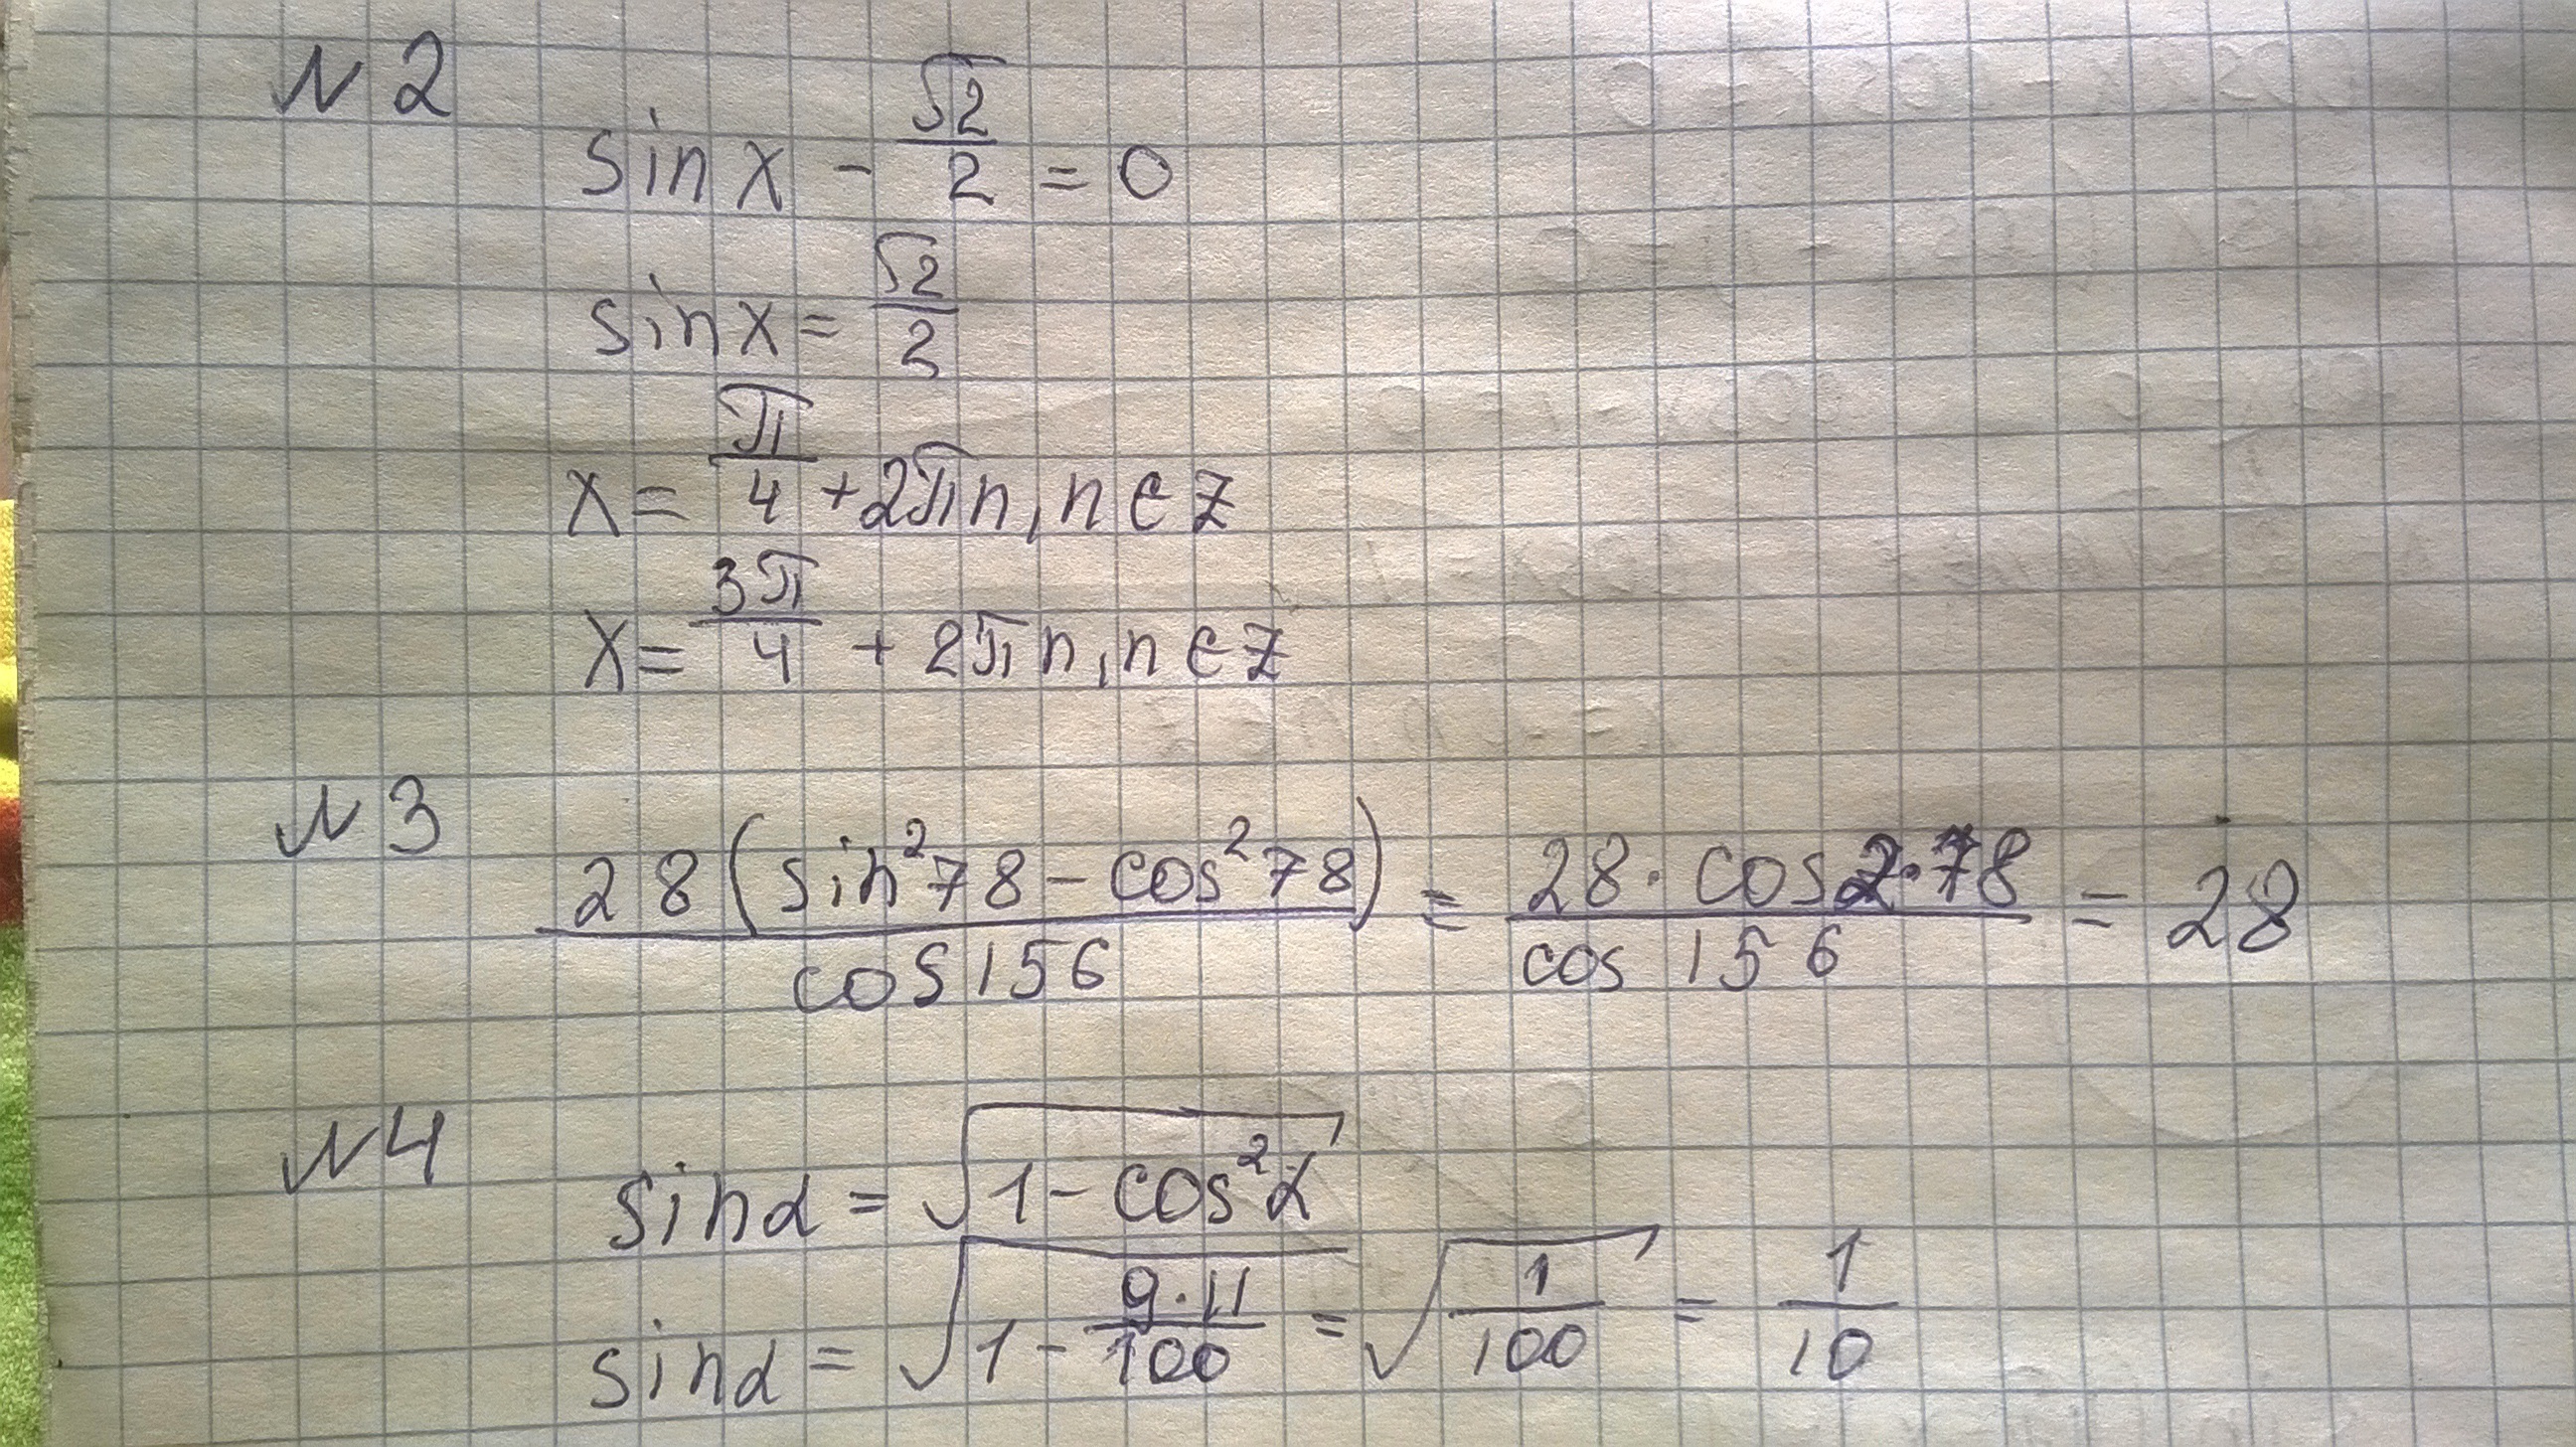 №2
sin x - √2/2 = 0
sin x = √2/2
x = π/4 + 2πn, n ∈ Z
x = 3π/4 + 2πn, n ∈ Z
№3
28(sin²78 - cos²78)/cos156 = 28·cos2·78/cos 156 = 28
№4
sinα = √(1 - cos²α)
sinα = √(1 - 9·11/100) = √(1/100) = 1/10